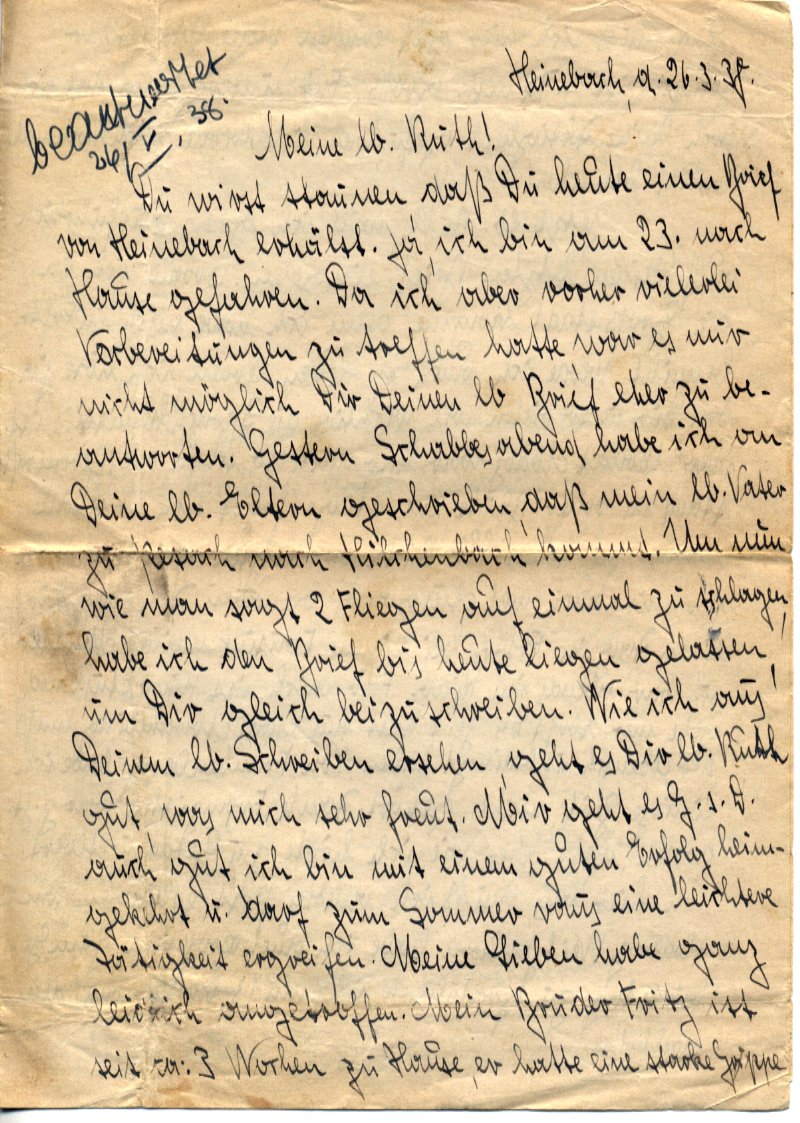 beantwortet
26/V. 38.
Heinebach, d. 26.3.38.
Meine lb. Ruth!
Du wirst staunen, daß Du heute einen Brief
von Heinebach erhälst. Ja, ich bin am 23. nach
Hause gefahren. Da ich aber vorher vielerlei
Vorbereitungen zu treffen hatte, war es mir
nicht möglich Dir Deinen lb Brief eher zu be-
antworten. Gestern Schabbesabend habe ich an
Deine lb. Eltern geschrieben, daß mein lb. Vater
zu Pesach nach Hilchenbach kommt. Um nun
wie man sagt 2 Fliegen auf einmal zu schlagen,
habe ich den Brief bis heute liegen gelassen,
um Dir gleich beizuschreiben. Wie ich aus
Deinem lb. Schreiben ersehen, geht es Dir lb. Ruth
gut, was mich sehr freut. Mir geht es G. s. D.
auch gut, ich bin mit einem guten Erfolg heim-
gekehrt u. darf zum Sommer raus eine leichtere
Tätigkeit ergreifen. Meine Lieben habe ganz
leidlich angetroffen. Mein Bruder Fritz ist
seit ca: 3 Wochen zu Hause, er hatte eine starke Grippe